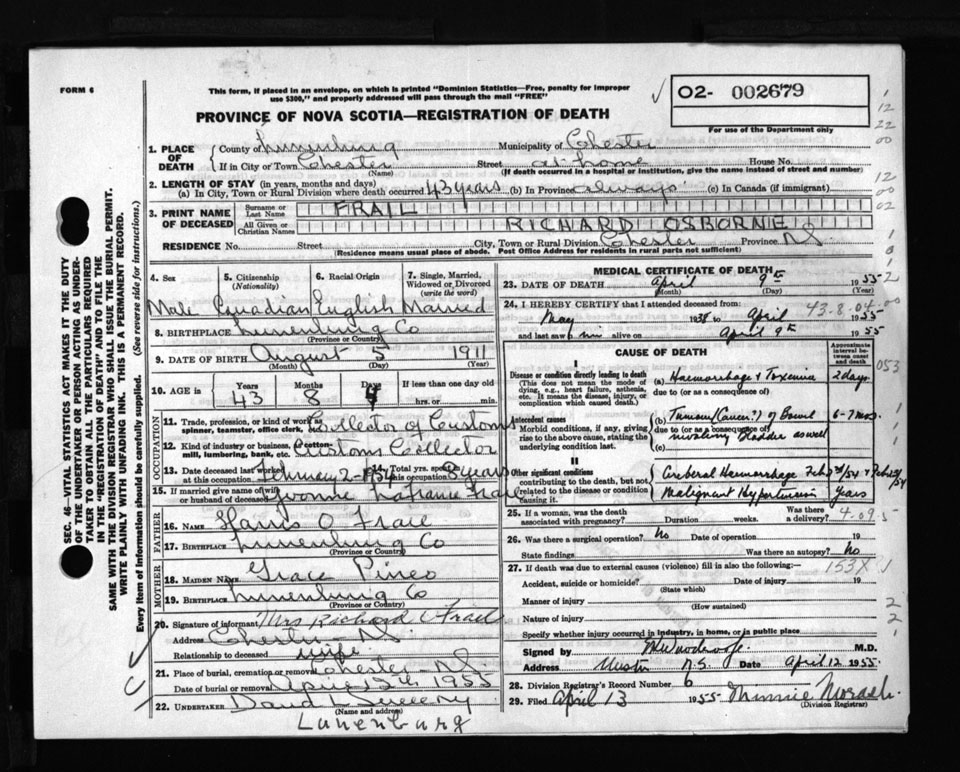 FORM 6
This form, if placed in an envelope, on which is printed "Dominion Statistics—Free, penalty for improper
use $300," and properly addressed will pass through the mail "FREE"
02- 002679
PROVINCE OF NOVA SCOTIA—REGISTRATION OF DEATH
For use of the Department only
1. PLACE OF DEATH
County of Lunenburg Municipality of Chester
If in City or Town Chester Street at home House No.
(Name) (If death occurred in a hospital or institution, give the name instead of street and number)
2. LENGTH OF STAY (in years, months and days)
(a) In City, Town or Rural Division where death occurred 43 years (b) In Province always (c) In Canada (if immigrant)
3. PRINT NAME OF DECEASED
Surname or Last Name FRAIL
All Given or Christian Names RICHARD OSBORNE
RESIDENCE No. Street City, Town or Rural Division Chester Province NS
(Residence means usual place of abode. Post Office Address for residents in rural parts not sufficient)
4. Sex 5. Citizenship (Nationality) 6. Racial Origin 7. Single, Married, Widowed or Divorced (write the word)
Male Canadian English Married
8. BIRTHPLACE Lunenburg Co
(Province or Country)
9. DATE OF BIRTH August 5 1911
(Month) (Day) (Year)
10. AGE in Years Months Days If less than one day
43 8 4 hrs. or min.
OCCUPATION
11. Trade, profession, or kind of work as spinner, teamster, office clerk, Collector of Customs
12. Kind of industry or business, as cotton-mill, lumbering, bank, etc. Customs Collector
13. Date deceased last worked at this occupation February 2-1954 Total yrs. spent years
15. If married give name of wife or husband of deceased Yvonne Frail
FATHER
16. NAME Harris O Frail
17. BIRTHPLACE Lunenburg Co
(Province or Country)
MOTHER
18. MAIDEN NAME Grace Pineo
19. BIRTHPLACE Lunenburg Co
(Province or Country)
20. Signature of informant Mrs Richard Frail
Address Chester NS
Relationship to deceased wife
21. Place of burial, cremation or removal Chester NS
Date of burial or removal April 12th 1955
22. UNDERTAKER David
(Name and address)
Lunenburg
MEDICAL CERTIFICATE OF DEATH
23. DATE OF DEATH April 9th 1955
(Month) (Day) (Year)
24. I HEREBY CERTIFY that I attended deceased from:
43.8.04
May 1938 to April 1955
and last saw him alive on April 9th 1955
CAUSE OF DEATH
Approximate interval between onset and death
I
Disease or condition directly leading to death
(This does not mean the mode of dying, e.g., heart failure, asthenia, etc. It means the disease, injury, or complication which caused death.)
(a) Haemorrhage & Toxemia 2 days
due to (or as a consequence of)
Antecedent causes
Morbid conditions, if any, giving rise to the above cause, stating the underlying condition last.
(b) Tumour (Cancer?) of Bowel 6-7 mos.
due to (or as a consequence of)
involving bladder as well
(c)
II
Other significant conditions
contributing to the death, but not related to the disease or condition causing it.
Cerebral Haemorrhage Feb
Malignant Hypertension Years
25. If a woman, was the death associated with pregnancy? Duration weeks. Was there a delivery? 4.09.5
26. Was there a surgical operation? No Date of operation 19
State findings Was there an autopsy? No
27. If death was due to external causes (violence) fill in also the following:— 153X
Accident, suicide or homicide? Date of injury 19
(State which)
Manner of injury
(How sustained)
Nature of injury
Specify whether injury occurred in industry, in home, or in public place
Signed by M.D.
Address Chester N.S. Date April 12 1955
28. Division Registrar's Record Number 6
29. Filed April 13 1955 Minnie Morash
(Division Registrar)
SEC. 46—VITAL STATISTICS ACT MAKES IT THE DUTY
OF THE UNDERTAKER OR PERSON ACTING AS UNDER-
TAKER TO OBTAIN ALL THE PARTICULARS REQUIRED
IN THE "REGISTRATION OF DEATH" AND TO FILE THE
SAME WITH THE DIVISION REGISTRAR WHO SHALL ISSUE THE BURIAL PERMIT.
WRITE PLAINLY WITH UNFADING INK. THIS IS A PERMANENT RECORD.
Every item of information should be carefully supplied. (See reverse side for instructions.)